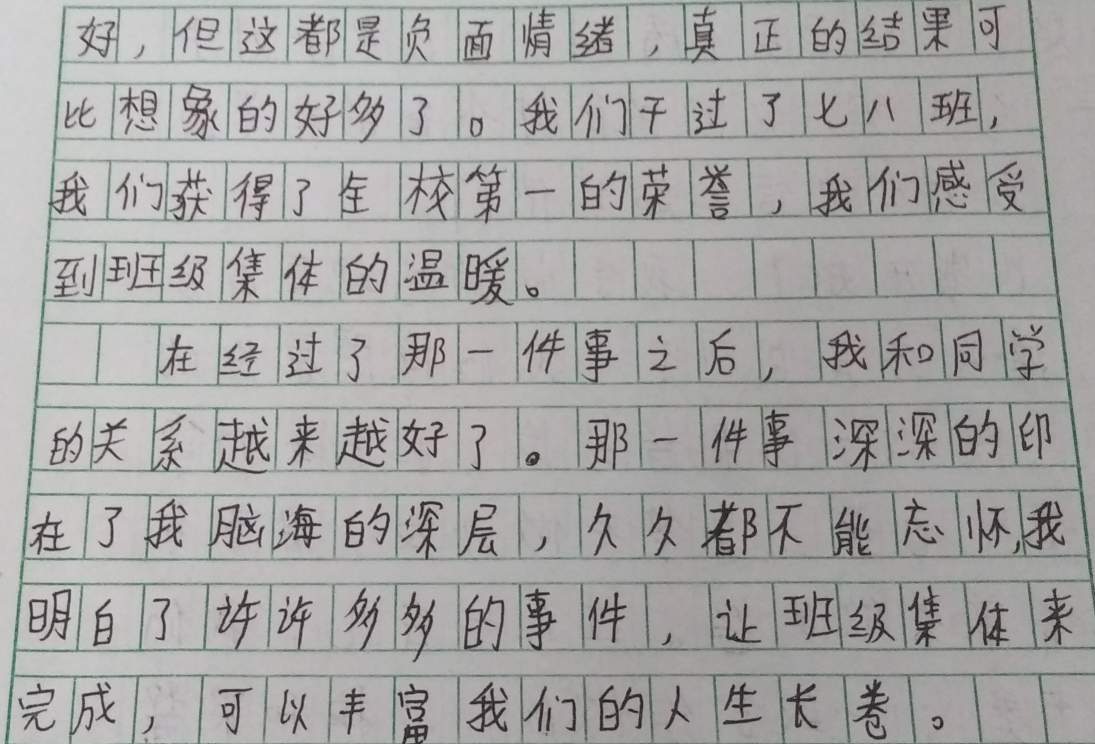 好，但这都是负面情绪，真正的结果可
比想象的好多了。我们干过了七八班，
我们获得了全校第一的荣誉，我们感受
到班级集体的温暖。
在经过了那一件事之后，我和同学
的关系越来越好了。那一件事深深的印
在了我脑海的深层，久久都不能忘怀，我
明白了许许多多的事件，让班级集体来
完成，可以丰富我们的人生长卷。